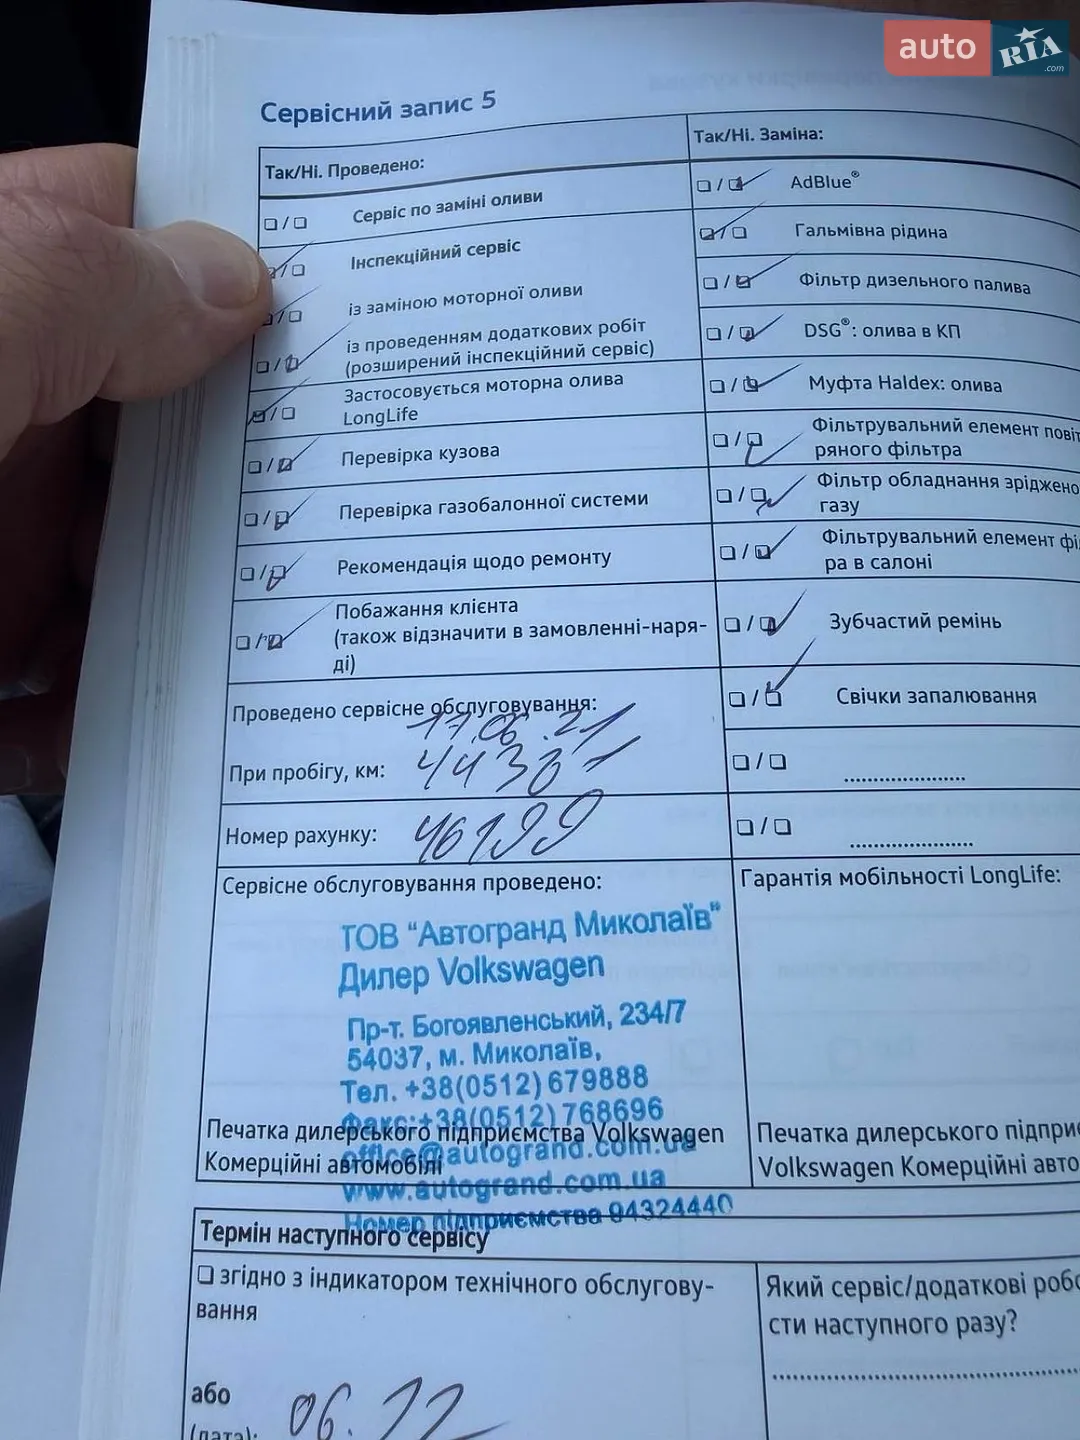 auto RIA.com
Сервісний запис 5
Так/Ні. Проведено:
Сервіс по заміні оливи
Інспекційний сервіс
із заміною моторної оливи
із проведенням додаткових робіт
(розширений інспекційний сервіс)
Застосовується моторна олива
LongLife
Перевірка кузова
Перевірка газобалонної системи
Рекомендація щодо ремонту
Побажання клієнта
(також відзначити в замовленні-наря-
ді)
Проведено сервісне обслуговування:
17.06.21
При пробігу, км:
Номер рахунку: 46199
Так/Ні. Заміна:
AdBlue®
Гальмівна рідина
Фільтр дизельного палива
DSG®: олива в КП
Муфта Haldex: олива
Фільтрувальний елемент повіт
ряного фільтра
Фільтр обладнання зріджено
газу
Фільтрувальний елемент філ
ра в салоні
Зубчастий ремінь
Свічки запалювання
Сервісне обслуговування проведено:
ТОВ "Автогранд Миколаїв"
Дилер Volkswagen
Пр-т. Богоявленський, 234/7
54037, м. Миколаїв,
Тел. +38(0512) 679888
Факс:+38(0512) 768696
office@autogrand.com.ua
www.autogrand.com.ua
Номер підприємства 94324440
Печатка дилерського підприємства Volkswagen
Комерційні автомобілі
Гарантія мобільності LongLife:
Печатка дилерського підприє
Volkswagen Комерційні авто
Термін наступного сервісу
згідно з індикатором технічного обслугову-
вання
або
(дата): 06.22
Який сервіс/додаткові робо
сти наступного разу?